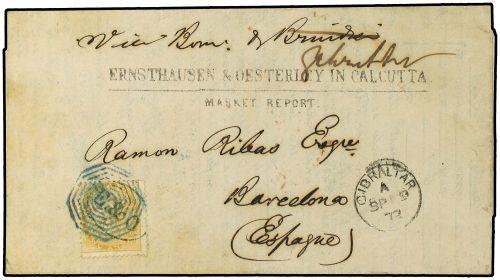 Via Bom: & Brindisi
Gibraltar
ERNSTHAUSEN & OESTERLEY IN CALCUTTA.
MARKET REPORT.
Ramon Ribas Esqre.
Barcelona
(Espagne)
GIBRALTAR
A
73